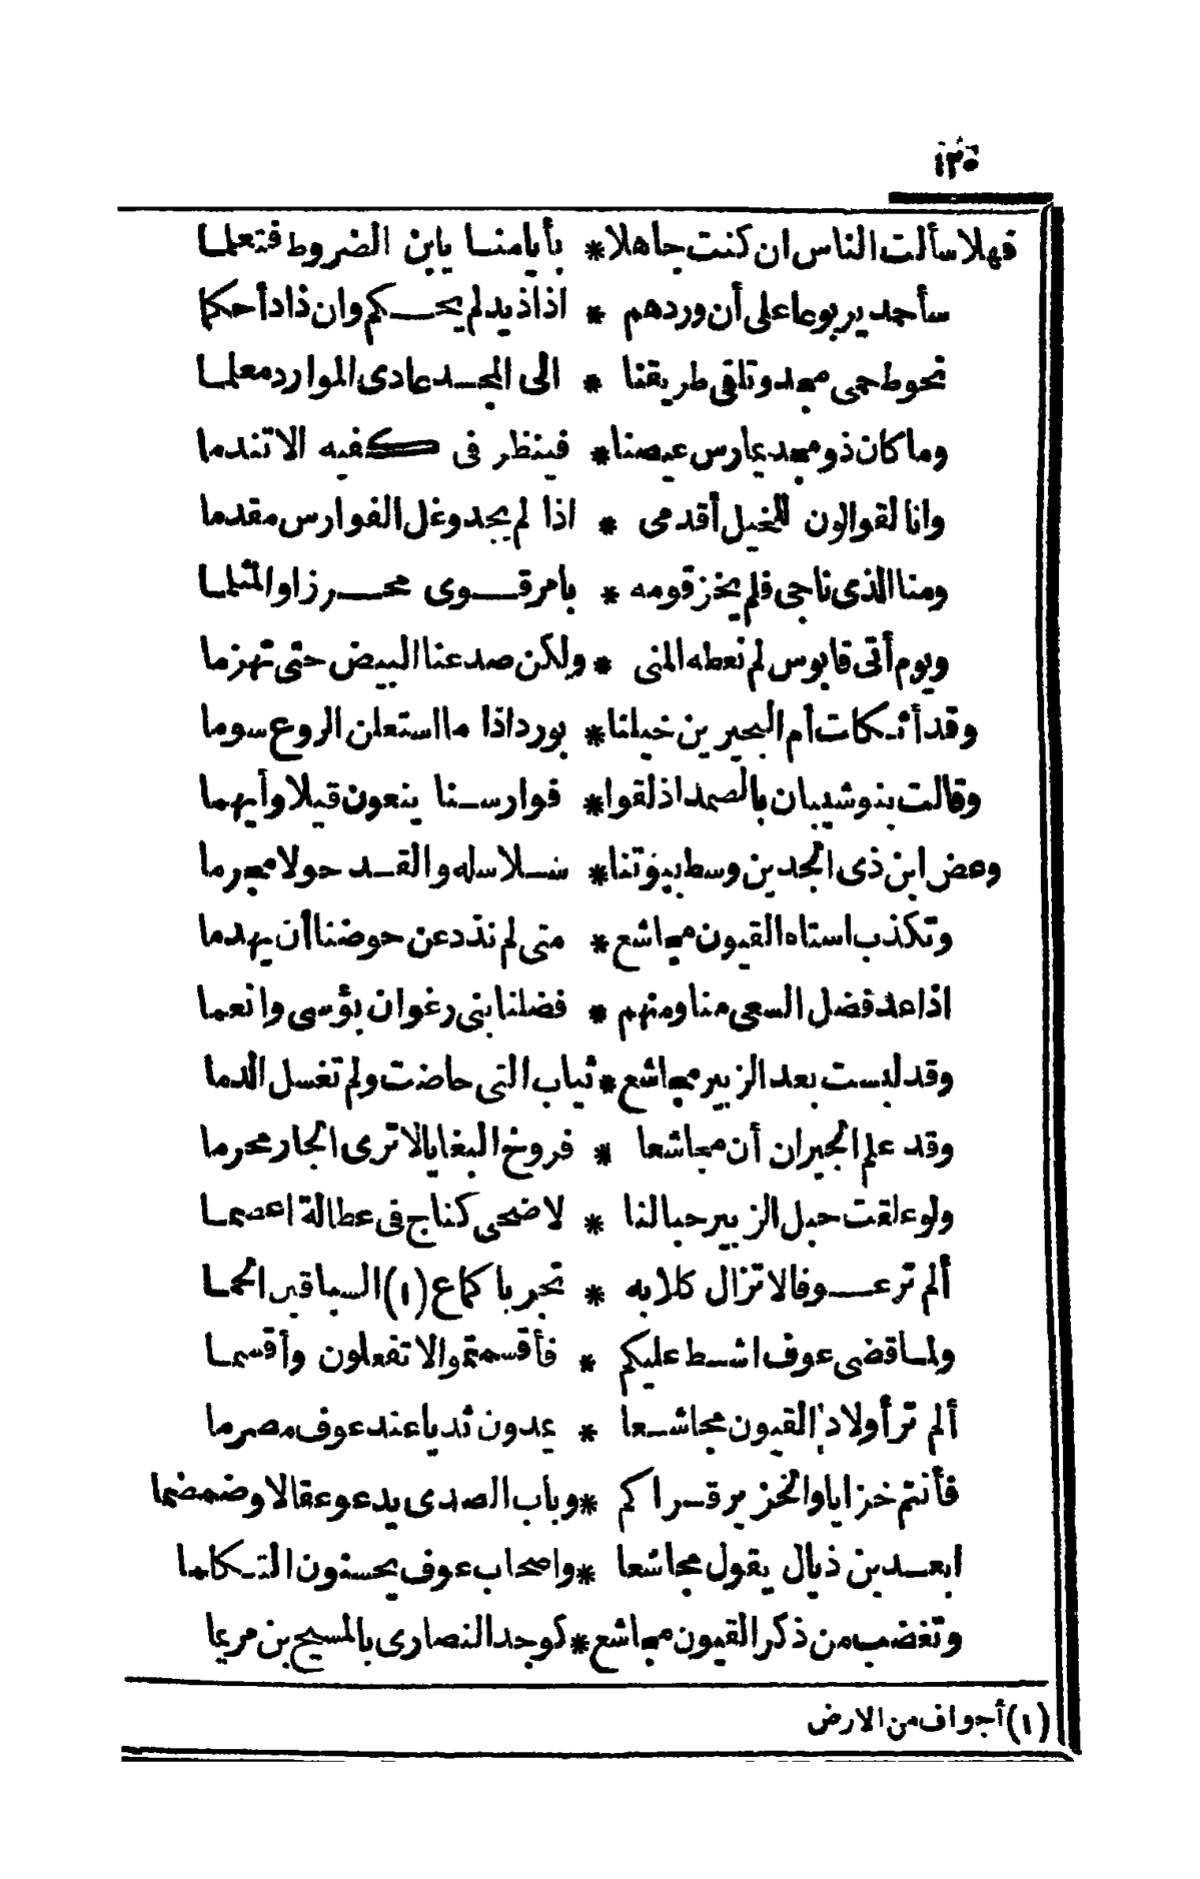 ١٣٥
فهلا سألت الناس ان كنت جاهلا * بأيامنا يابن الضروط فتعلما
سأحمد يربوعا على أن وردهم * اذا ذيد لم يحكم وان ذاد أحكما
نحوط حمى مجد وتلقى طريقنا * الى المجد عادى الموارد معلما
وما كان ذو مجد يمارس عيصنا * فينظر فى كفيه الا تندما
وانا لقوالون للخيل أقدمى * اذا لم يجد وغل الفوارس مقدما
ومنا الذى ناجى فلم يخز قومه * بامر قوى محرزا والمثلما
ويوم أتى قابوس لم نعطه المنى * ولكن صدعنا البيض حتى تهزما
وقد أثكلت أم البحيرين خيلنا * بورد اذا ما استعلن الروع سوما
وقالت بنو شيبان بالصمد اذ لقوا * فوارسنا ينعون قيلا وأيهما
وعض ابن ذى الجدين وسط بيوتنا * سلاسله والقد حولا مجرما
وتكذب استاه القيون مجاشع * متى لم نذد عن حوضنا أن يهدما
اذا عد فضل السعى منا ومنهم * فضلنا بنى رغوان بؤسى وانعما
وقد لبست بعد الزبير مجاشع * ثياب التى حاضت ولم تغسل الدما
وقد علم الجيران أن مجاشعا * فروخ البغايا لا ترى الجار محرما
ولو علقت حبل الزبير حبالنا * لاضحى كناج فى عطالة اعصما
ألم تر عوفا لا تزال كلابه * تجر باكماع (١) السباقين الحما
ولما قضى عوف اشط عليكم * فأقسمتم والا تفعلون وأقسما
ألم تر أولاد القيون مجاشعا * يمدون ثديا عند عوف مصرما
فأنتم خزايا والخزير قراكم * وباب الصدى يدعو عقالا وضمضما
ابعد بن ذيال يقول مجاشعا * واصحاب عوف يحسنون التكلما
وتغضب من ذكر القيون مجاشع * كوجد النصارى بالمسيح بن مريما
(١) أجواف من الارض